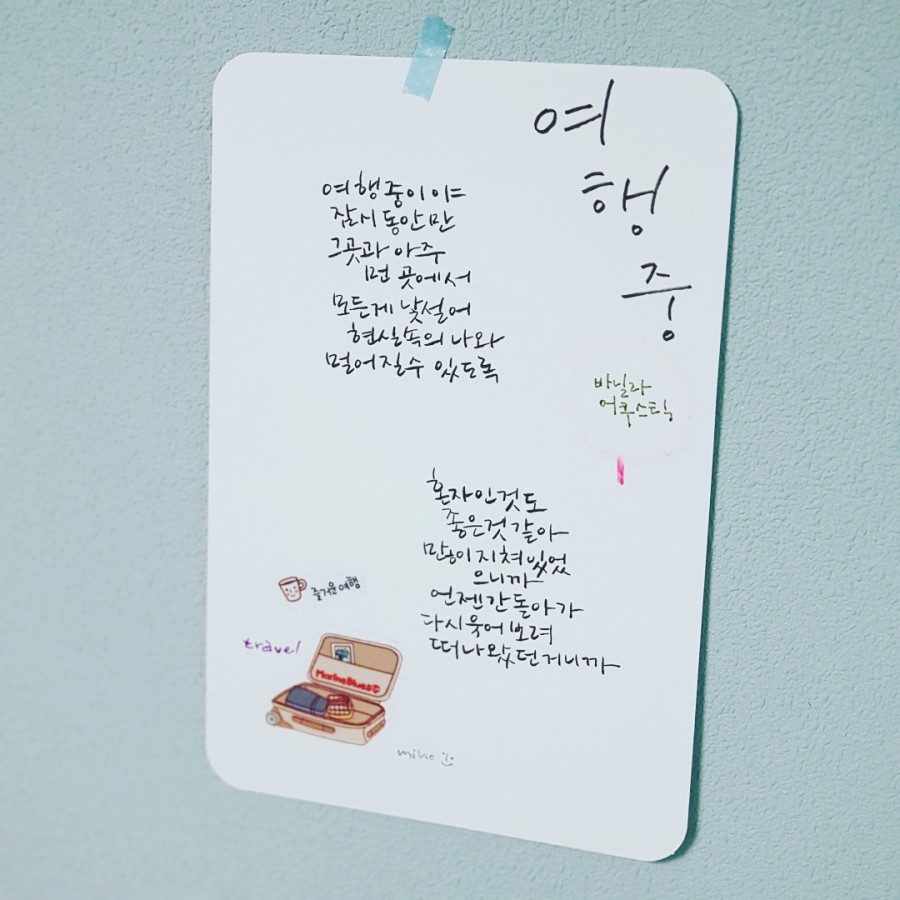 여행중
여행중이야
잠시동안만
그곳과 아주
먼 곳에서
모든게 낯설어
현실속의 나와
멀어질수 있도록
바닐라
어쿠스틱
혼자인것도
좋은것 같아
많이 지쳐있었
으니까
언젠간 돌아가
다시 웃어보려
떠나왔던거니까
즐거운여행
travel
MarineBlues
miho